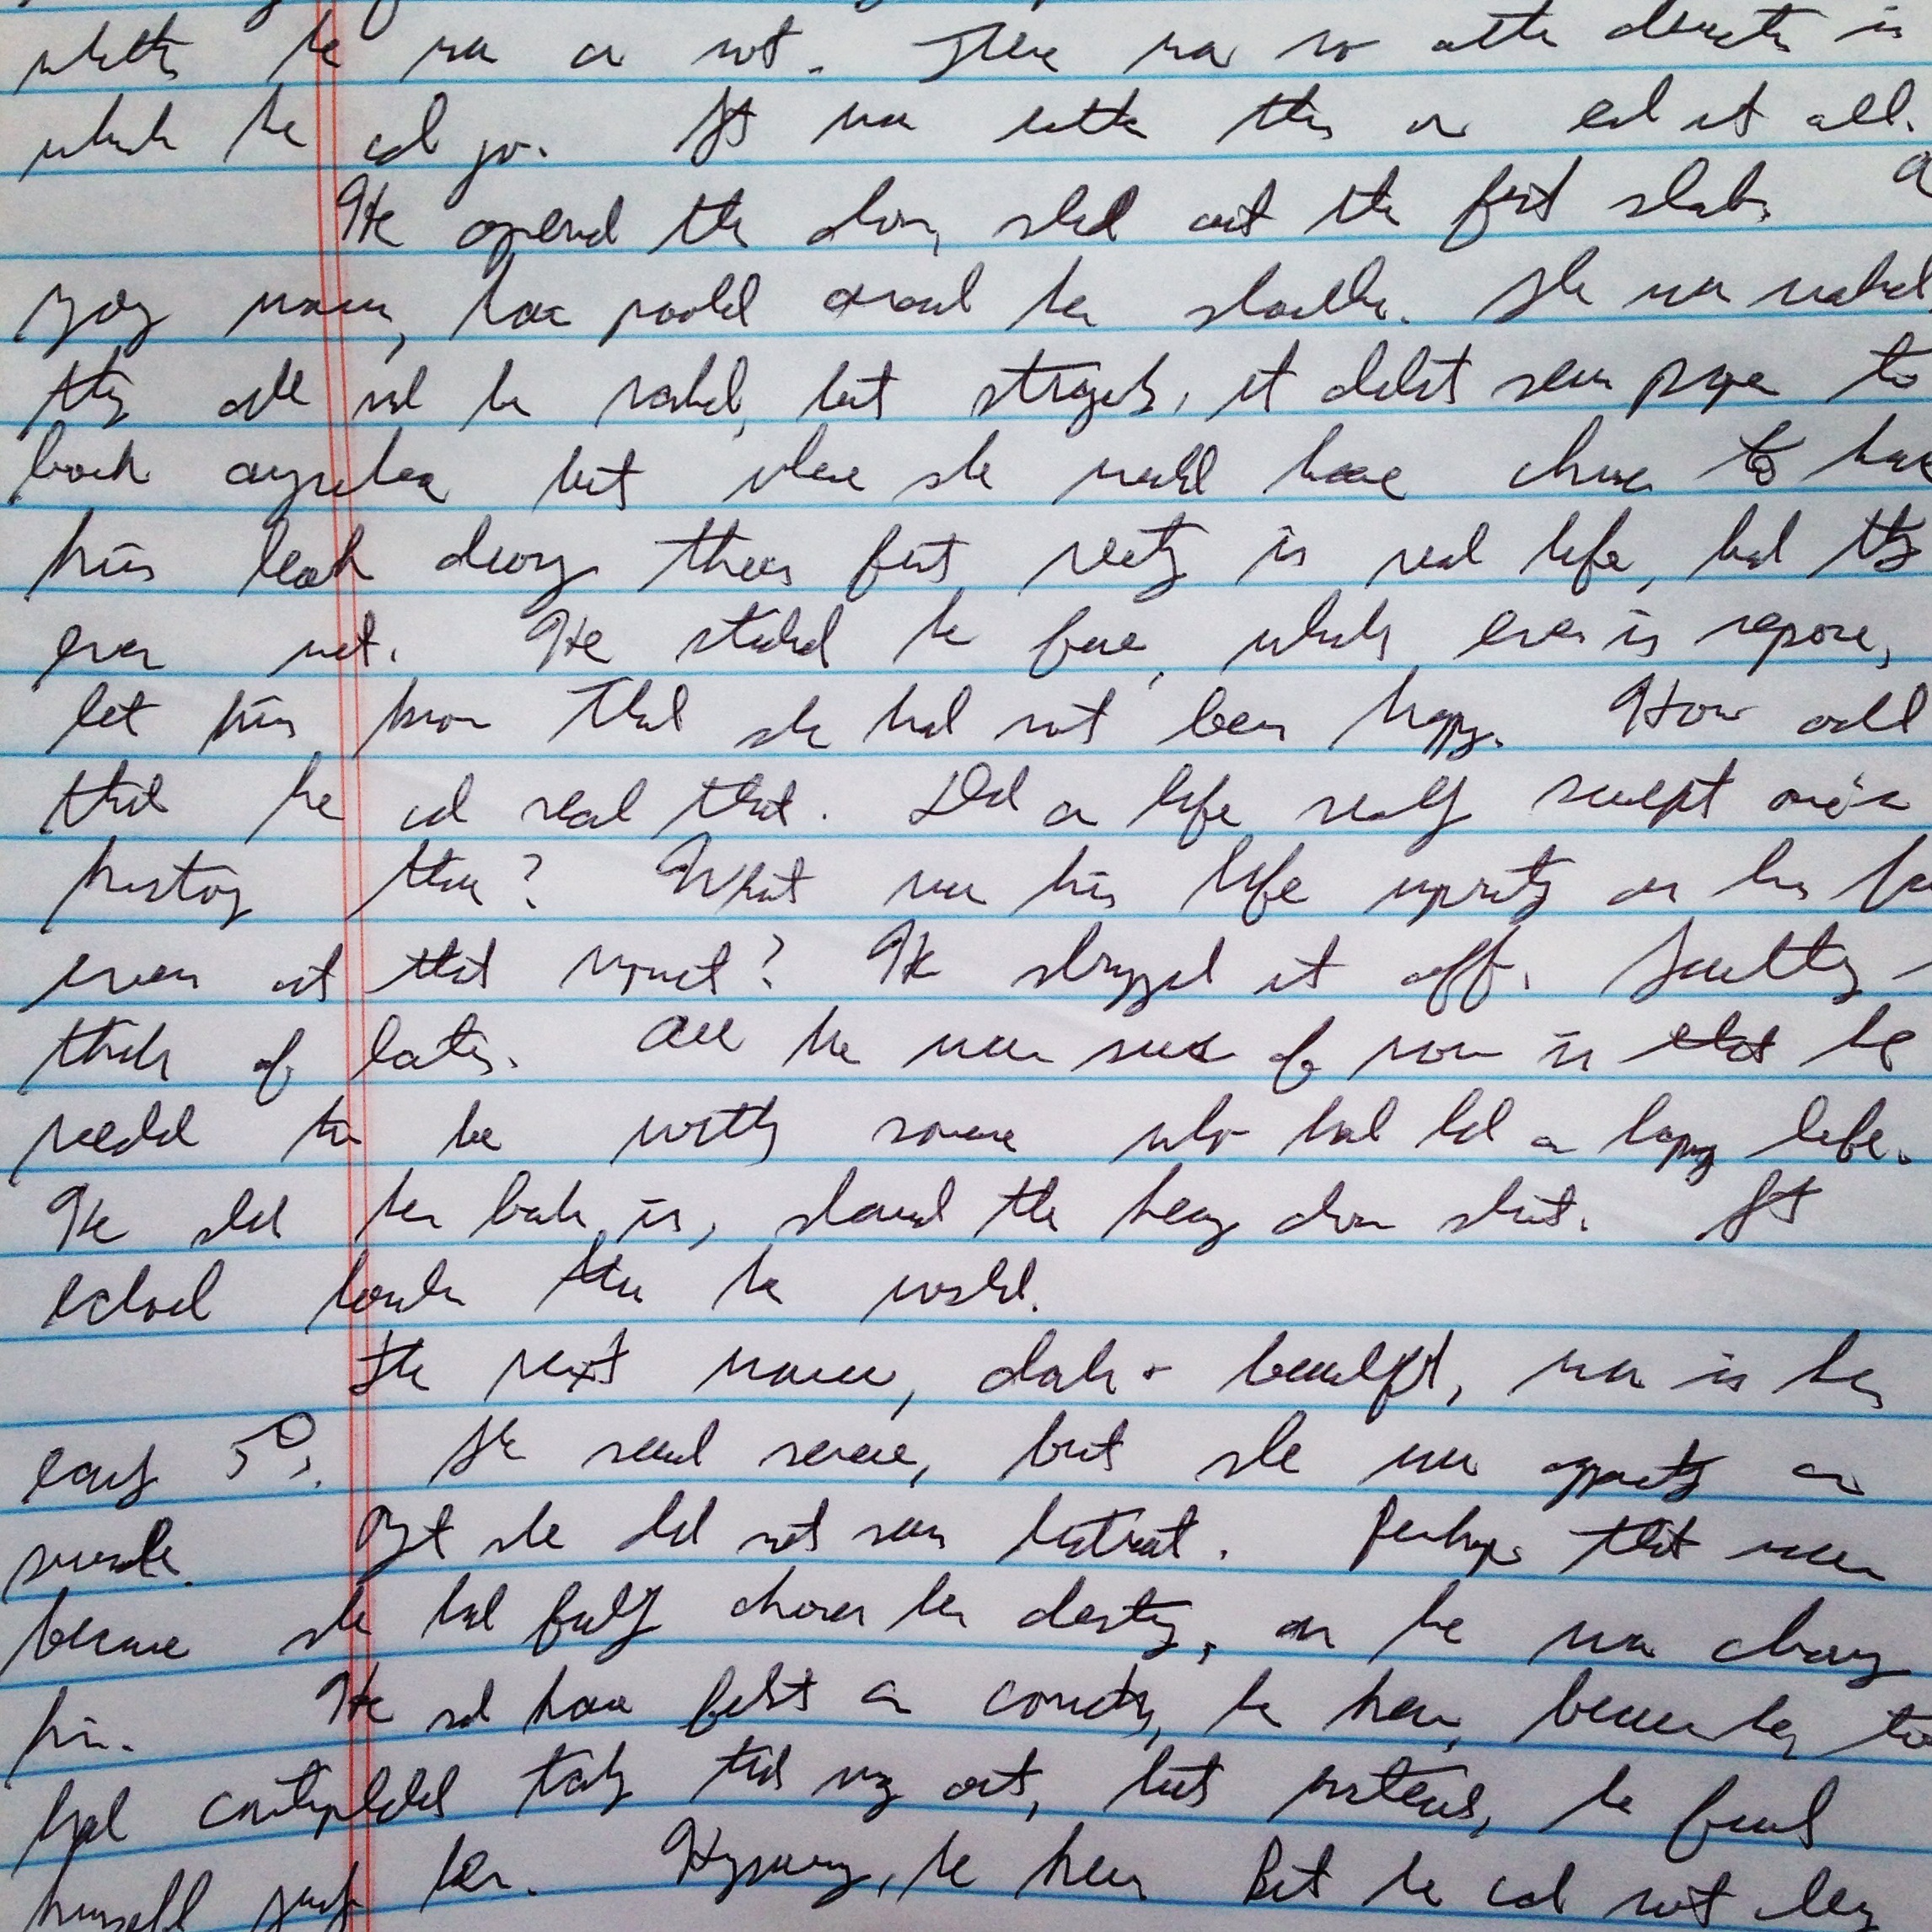 whether he was or not. There was no other direction in
which he could go. It was either this or end it all.
He opened the door, slid out the first slab. A
young woman, hair pooled around her shoulders. She was naked,
they all would be naked, but strangely, it didn't seem proper to
look anywhere but where she would have chosen to have
him look during their first meeting in real life, had they
ever met. He studied her face, which even in repose,
let him know that she had not been happy. How odd
that he could read that. Did a life really sculpt one's
history then? What was his life imprinting on his
even at that moment? He shrugged it off. Something
think of later. All he was sure of now is he
needed to be with someone who had led a happy life.
He slid her back in, slammed the heavy door shut. It
echoed louder than he would.
The next woman, dark + beautiful, was in her
early 50s. She seemed serene, but she was apparently a
suicide. Yet she did not seem distraught. Perhaps that was
because she had fully chosen her destiny, as he was choosing
his. He should have felt a connection, he knew, because he, too
had contemplated taking that way out, but instead, he found
himself judging her. Hypocrisy, he knew. But he could not